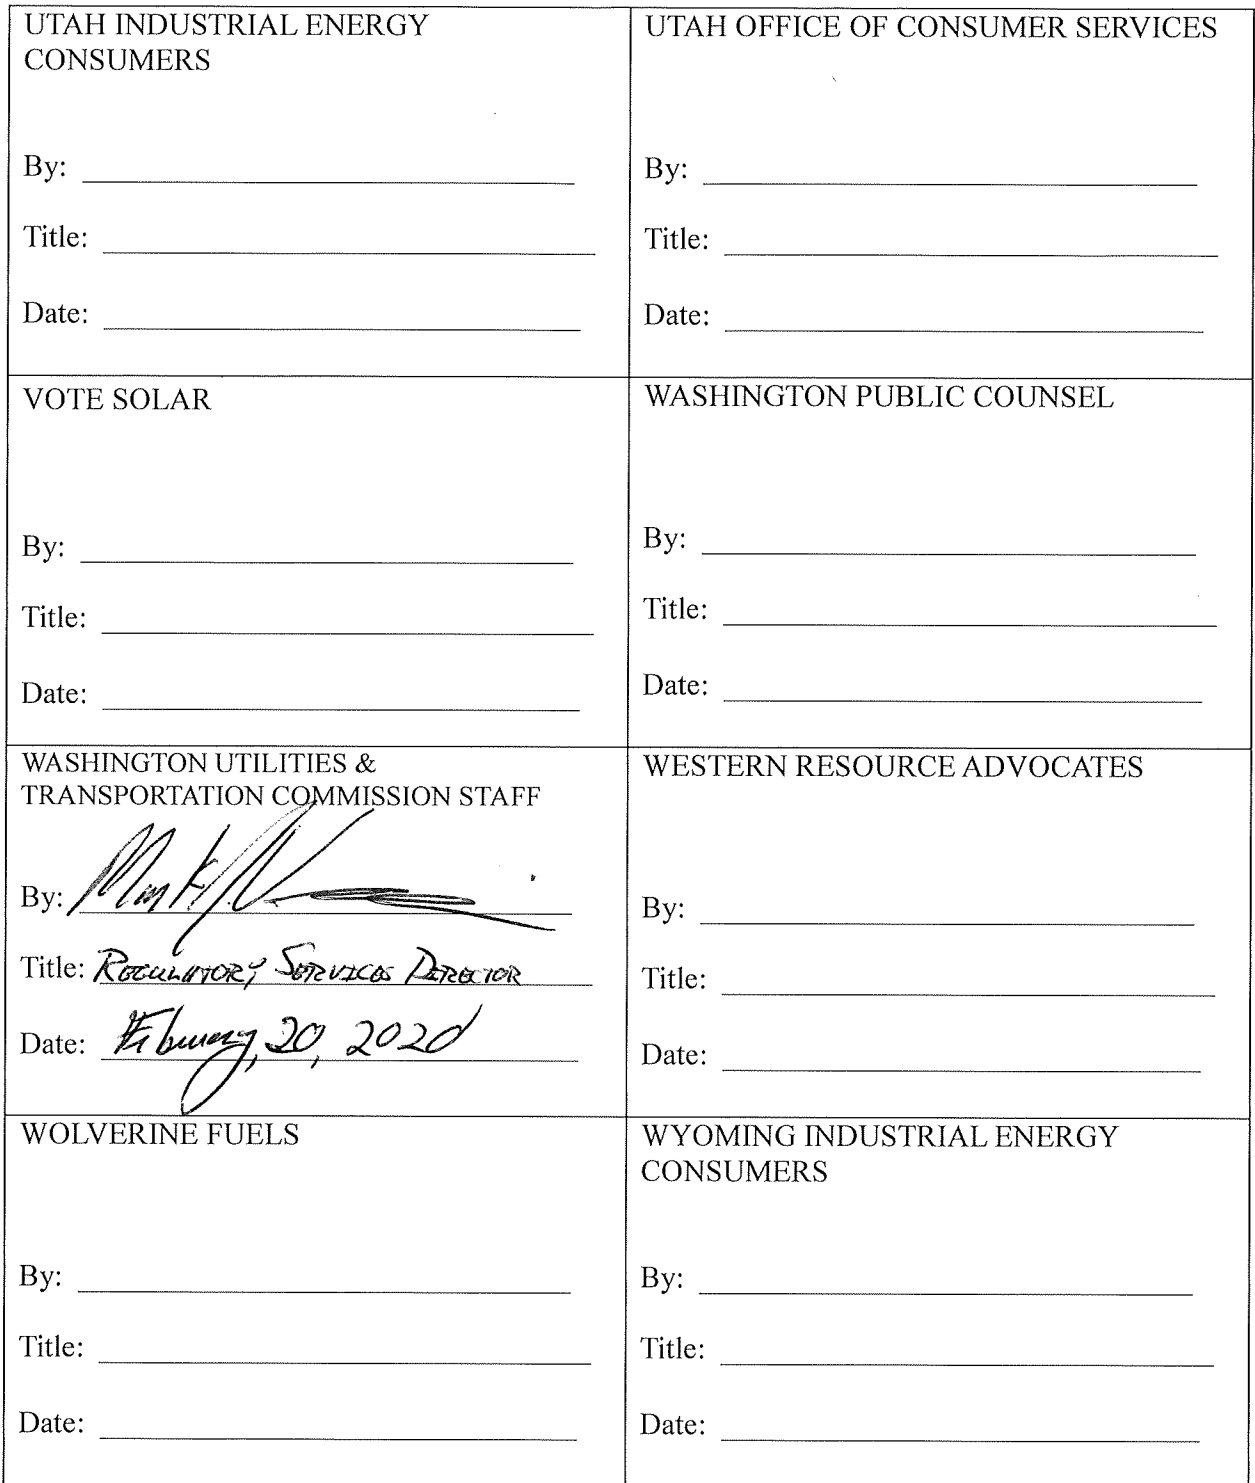 UTAH INDUSTRIAL ENERGY
CONSUMERS
By:
Title:
Date:
UTAH OFFICE OF CONSUMER SERVICES
By:
Title:
Date:
VOTE SOLAR
By:
Title:
Date:
WASHINGTON PUBLIC COUNSEL
By:
Title:
Date:
WASHINGTON UTILITIES &
TRANSPORTATION COMMISSION STAFF
By: Mark
Title: REGULATORY SERVICES DIRECTOR
Date: February, 20, 2020
WESTERN RESOURCE ADVOCATES
By:
Title:
Date:
WOLVERINE FUELS
By:
Title:
Date:
WYOMING INDUSTRIAL ENERGY
CONSUMERS
By:
Title:
Date: